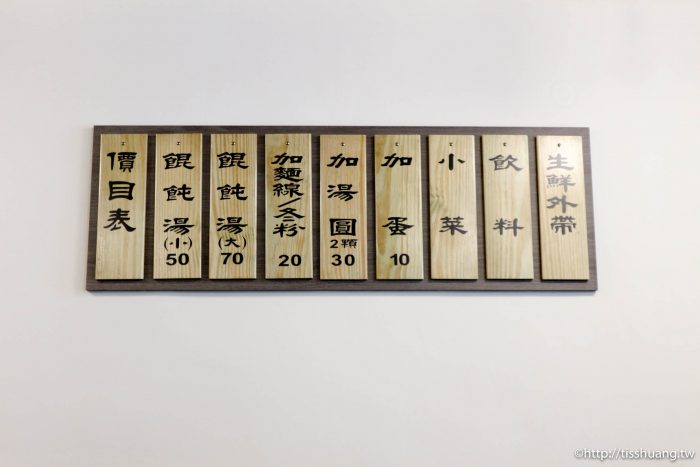 價目表
餛飩湯(小)50
餛飩湯(大)70
加麵線/冬粉20
加湯圓2顆30
加蛋10
小菜
飲料
生鮮外帶
©http://tisshuang.tw